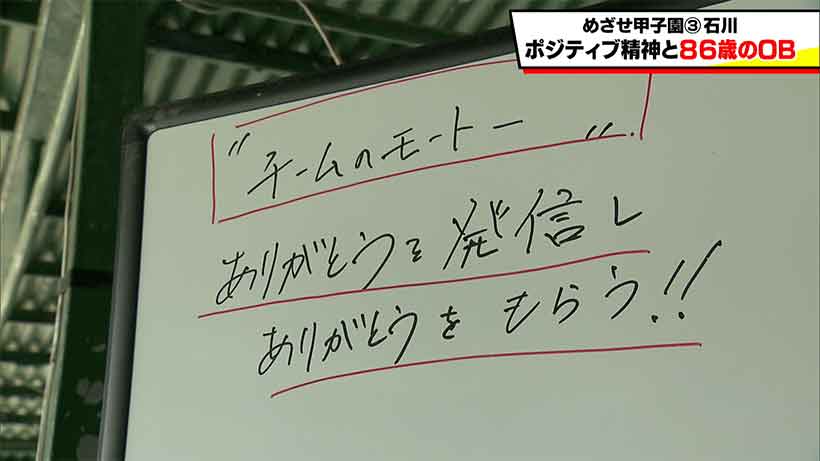 めざせ甲子園③石川
ポジティブ精神と86歳のOB
"チームのモートー"
ありがとうを発信し
ありがとうをもらう!!